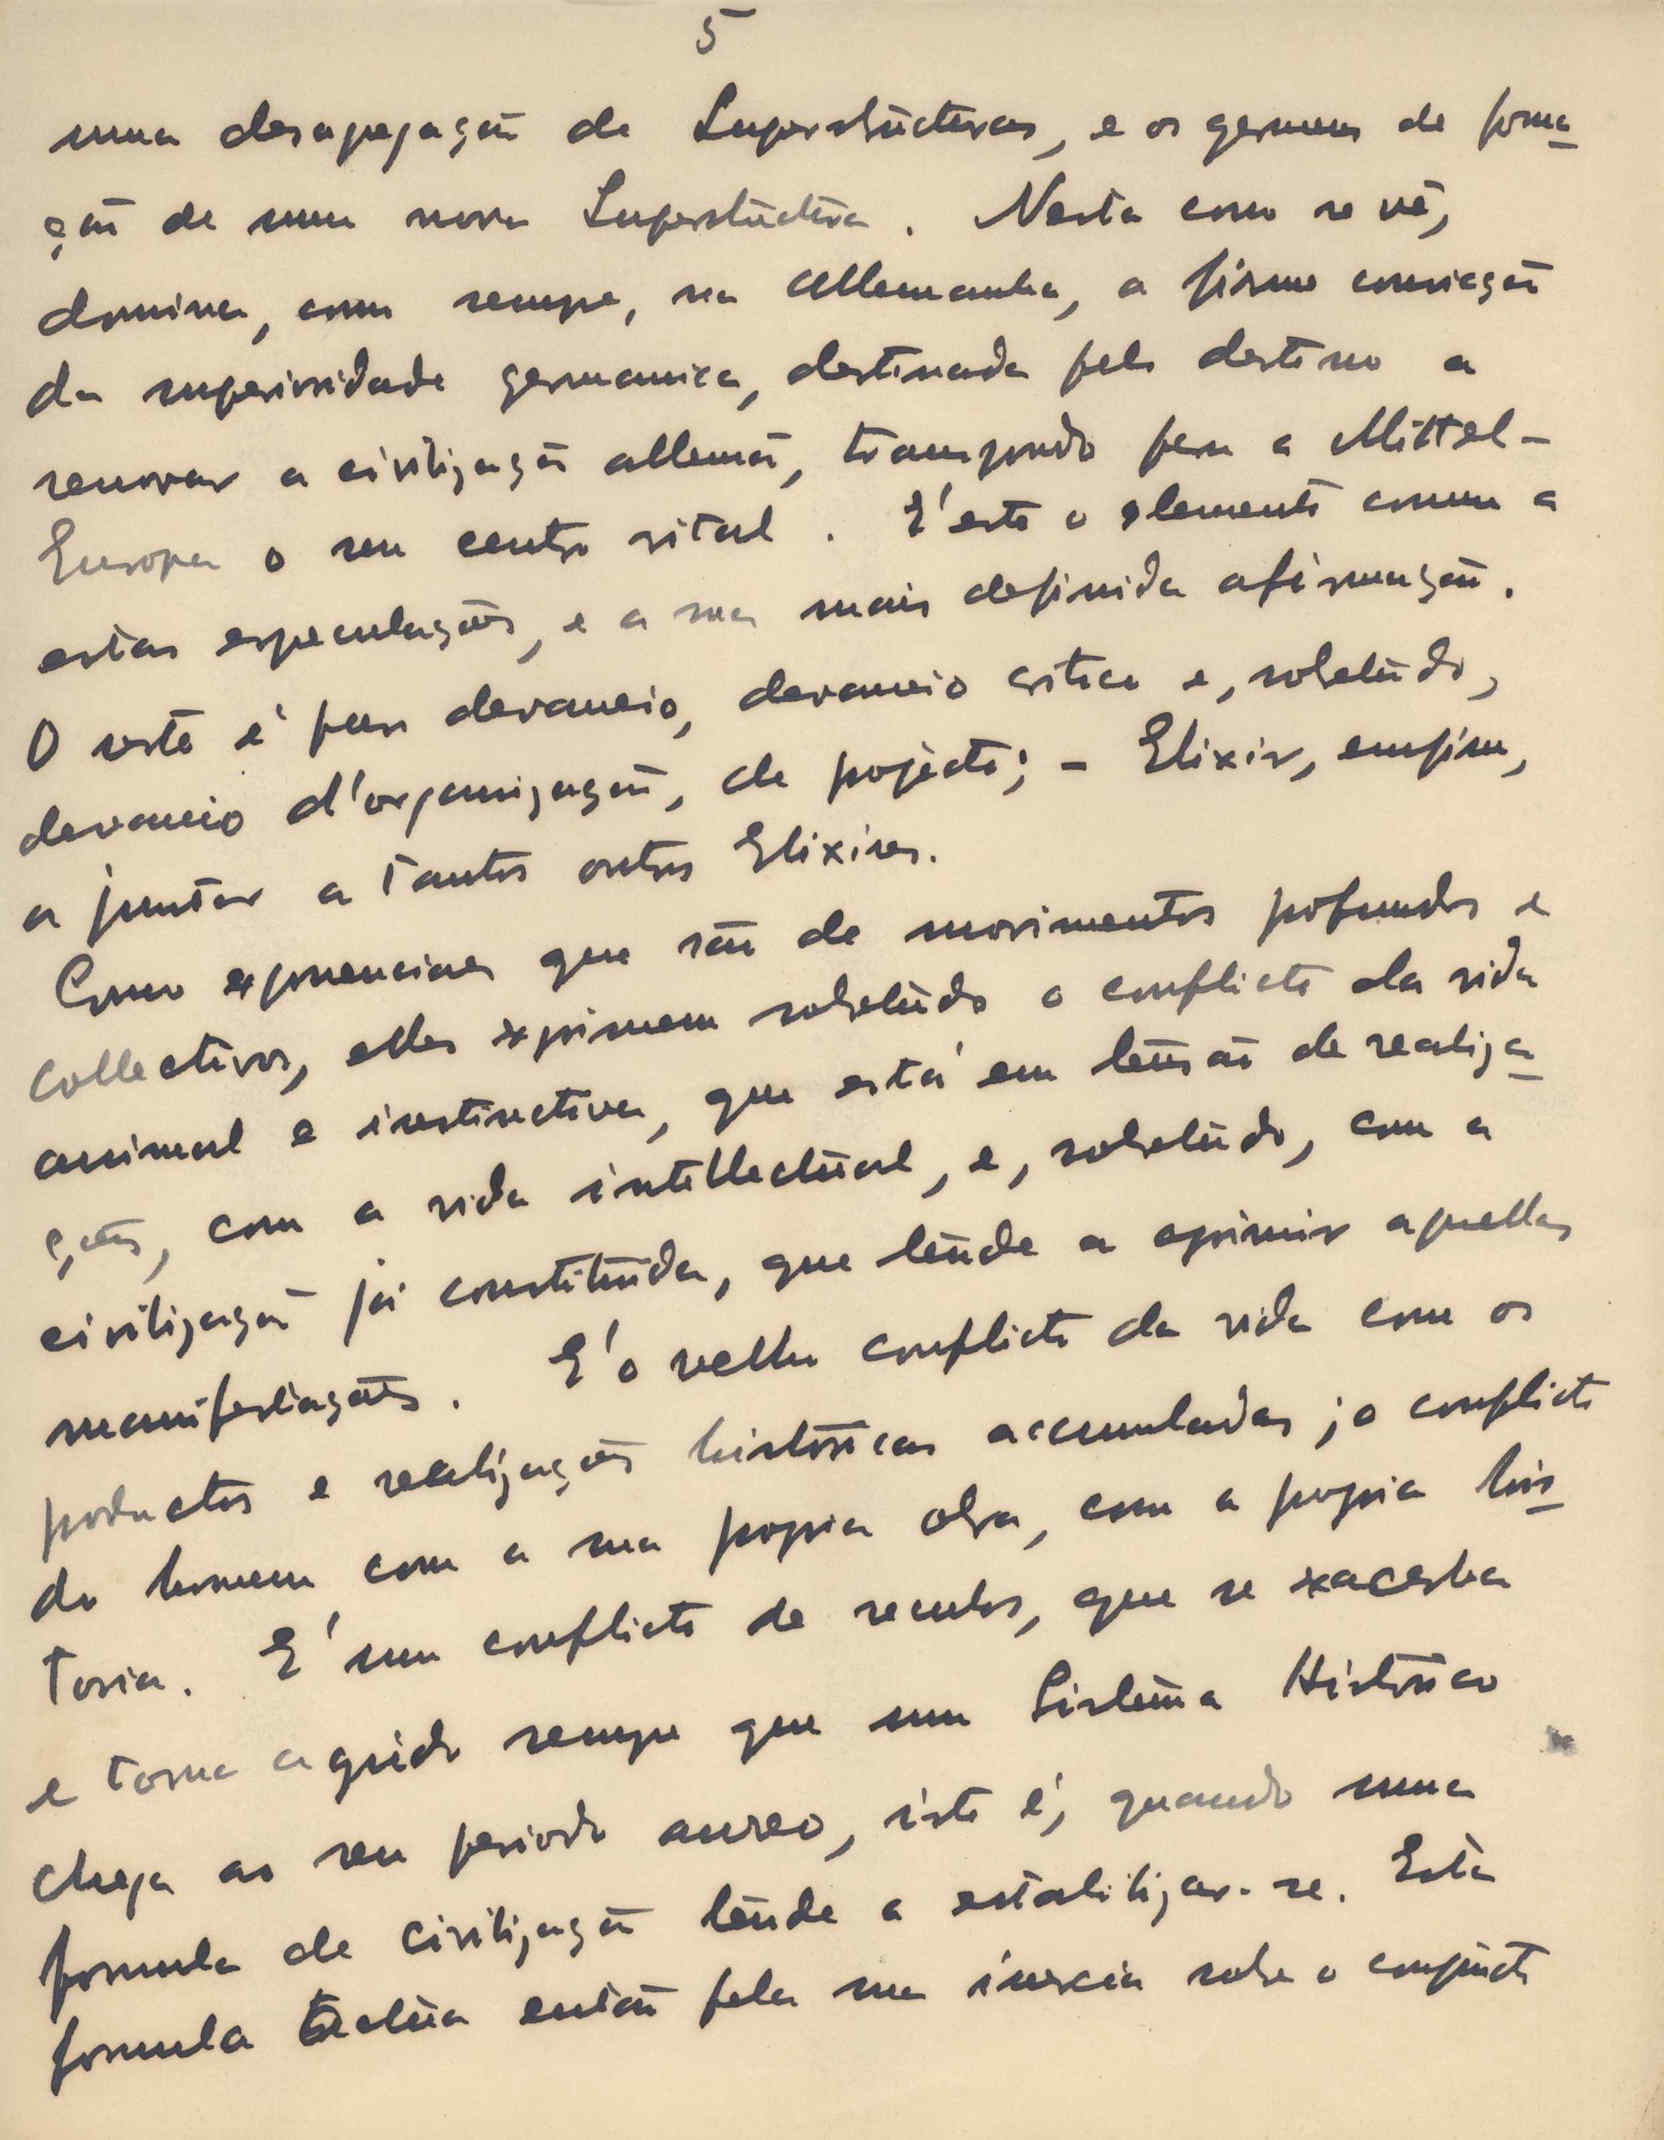 5
uma desagregação de Superstructuras, e os germens de forma-
ção de uma nova Superstuctura. Nesta como se vê,
domina, como sempre, na Allemanha, a firme convicção
da superioridade germanica, destinada pelo destino a
renovar a civilização allemã, transpondo para a Mittel-
Europa o seu centro vital. E' este o elemento comum a
estas especulações, e a sua mais definida afirmação.
O resto é puro devaneio, devaneio critico e, sobretudo,
devaneio d'organização, de projecto; - Elixir, emfim,
a juntar a tantos outros Elixires.
Como exponenciaes que são de movimentos profundos e
collectivos, elles exprimem sobretudo o conflicto da vida
animal e instinctiva, que está em tensão de realiza-
ções, com a vida intellectual, e, sobretudo, com a
civilização já constituida, que tende a oprimir aquellas
manifestações. E' o velho conflicto da vida com os
productos e realizações históricas accumuladas; o conflicto
do homem com a sua propria obra, com a propria his-
toria. E' um conflicto de seculos, que se exacerba
e torna agudo sempre que um Sistema Histórico
chega ao seu periodo aureo, isto é, quando uma
formula de civilização tende a estabilizar-se. Esta
formula actua então pela sua inercia sobre o conjuncto